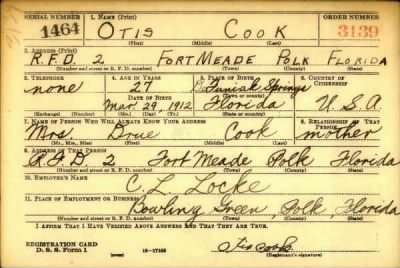 SERIAL NUMBER 1. NAME (Print) ORDER NUMBER
1464 OTIS COOK 3139
(First) (Middle) (Last)
3. ADDRESS (Print)
R.F.D. 2 FORT MEADE POLK FLORIDA
(Number and street or R. F. D. number) (Town) (County) (State)
3. TELEPHONE 4. AGE IN YEARS 5. PLACE OF BIRTH 6. COUNTRY OF CITIZENSHIP
none 27 De Funiak Springs
DATE OF BIRTH (Town or county)
Mar. 29, 1912 Florida U.S.A.
(Exchange) (Number) (Mo.) (Day) (Yr.) (State or country)
7. NAME OF PERSON WHO WILL ALWAYS KNOW YOUR ADDRESS 8. RELATIONSHIP OF THAT PERSON
Mrs. Drue Cook mother
(Mr., Mrs., Miss) (First) (Middle) (Last)
9. ADDRESS OF THAT PERSON
R.F.D. 2 Fort Meade Polk Florida
(Number and street or R. F. D. number) (Town) (County) (State)
10. EMPLOYER'S NAME
C. L. Locke
11. PLACE OF EMPLOYMENT OR BUSINESS
Bowling Green, Polk, Florida
(Number and street or R. F. D. number) (Town) (County) (State)
I AFFIRM THAT I HAVE VERIFIED ABOVE ANSWERS AND THAT THEY ARE TRUE.
REGISTRATION CARD
D. S. S. Form 1 (over) 16-17105 Otis Cook
(Registrant's signature)